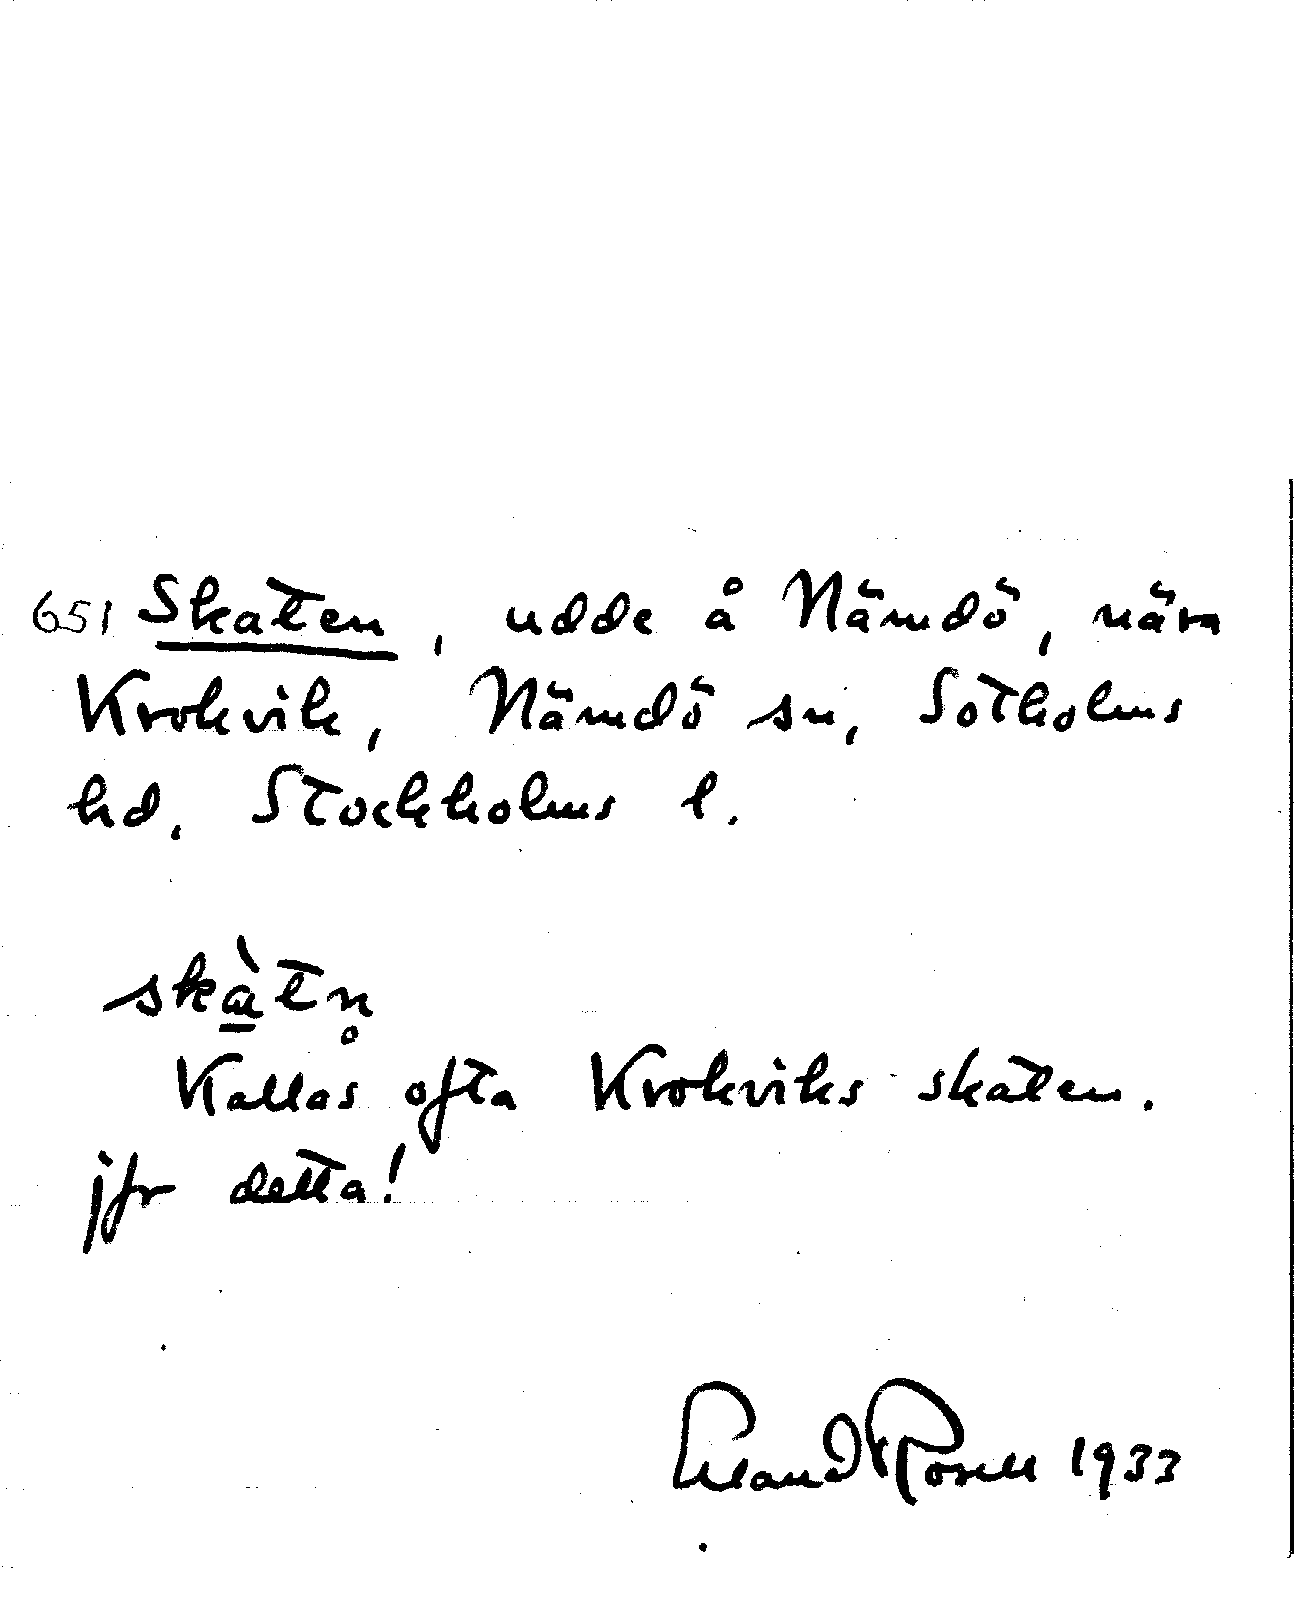 651 Skaten, udde å Nämdö, nära
Krokvik, Nämdö sn, Sotholms
hd, Stockholms l.
skà̱tn̥
Kallas ofta Krokviks skaten.
jfr detta!
Erland Rosell 1933